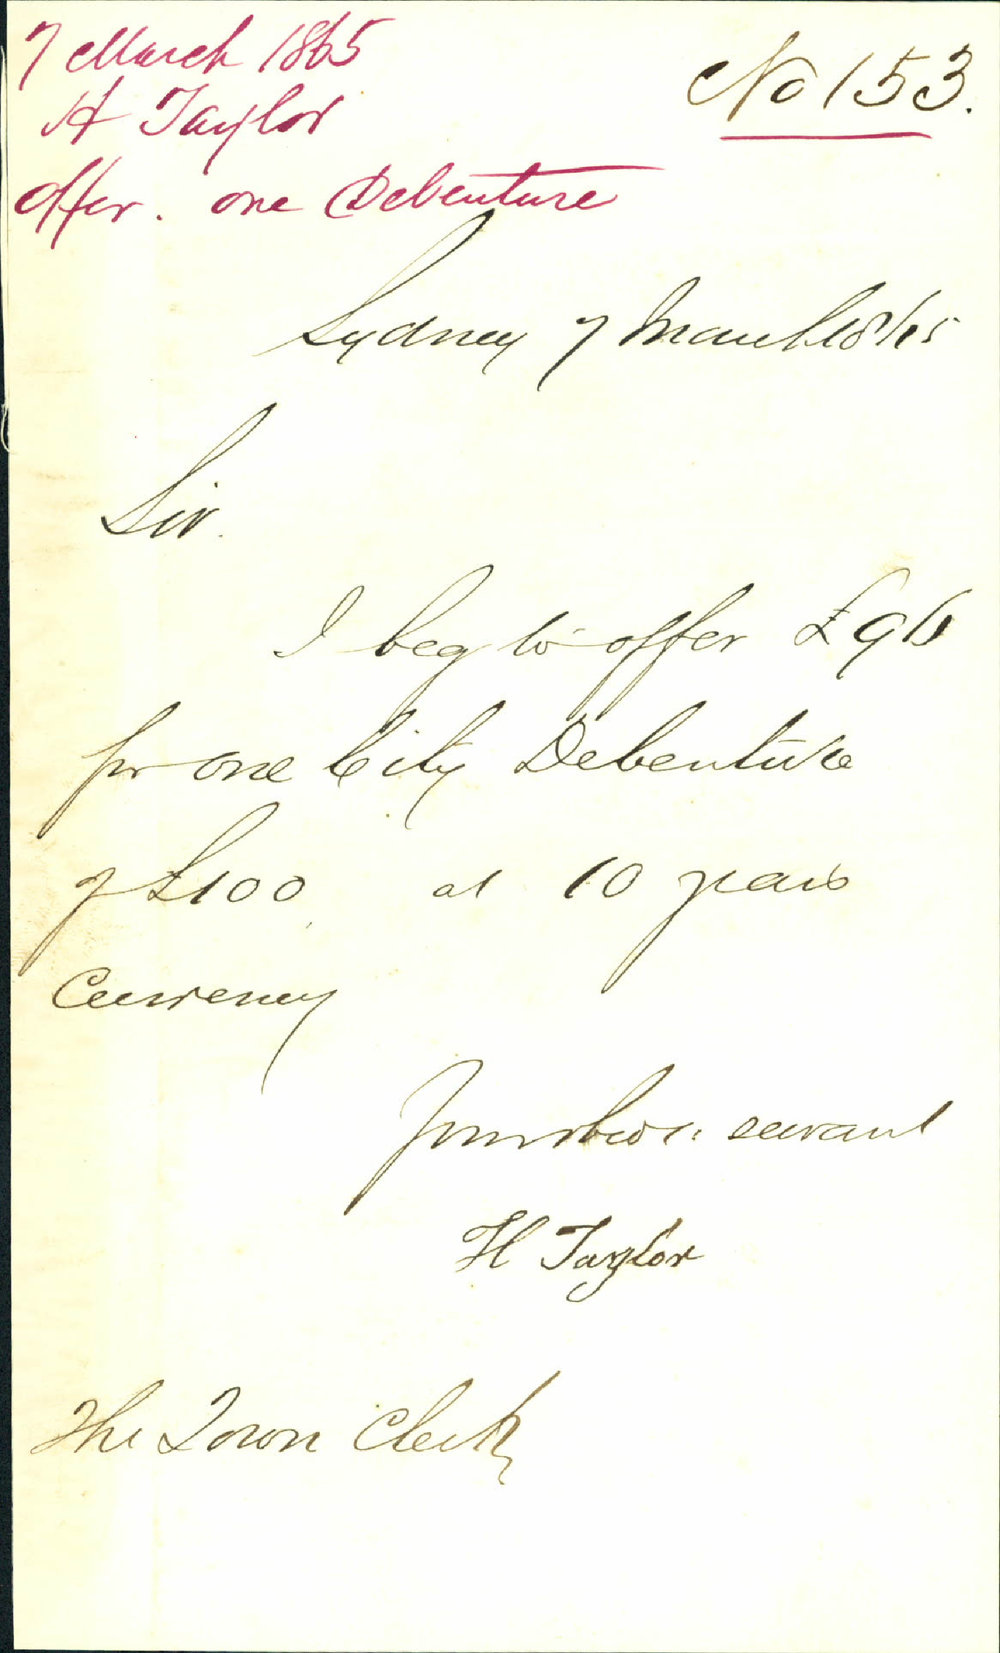 7 March 1865
H Taylor
Offer. one Debenture
No 153.
Sydney 7 March 1865
Sir.
I beg to offer £96
for one City Debenture
of £100 at 10 years
Currency
Your obdt: servant
H Taylor
The Town Clerk